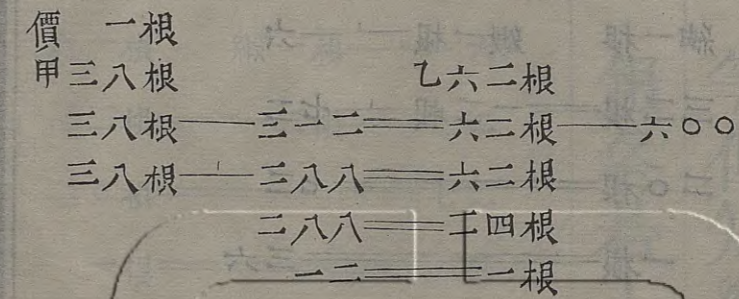 價 一根
甲三八根 乙六二根
三八根——三一二══六二根——六〇〇
三八根⊥二八八══六二根
二八八══二四根
一二══一根